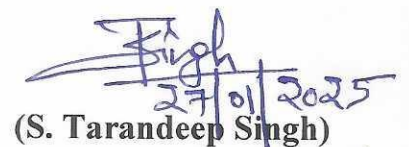 Singh
27/01/2025
(S. Tarandeep Singh)